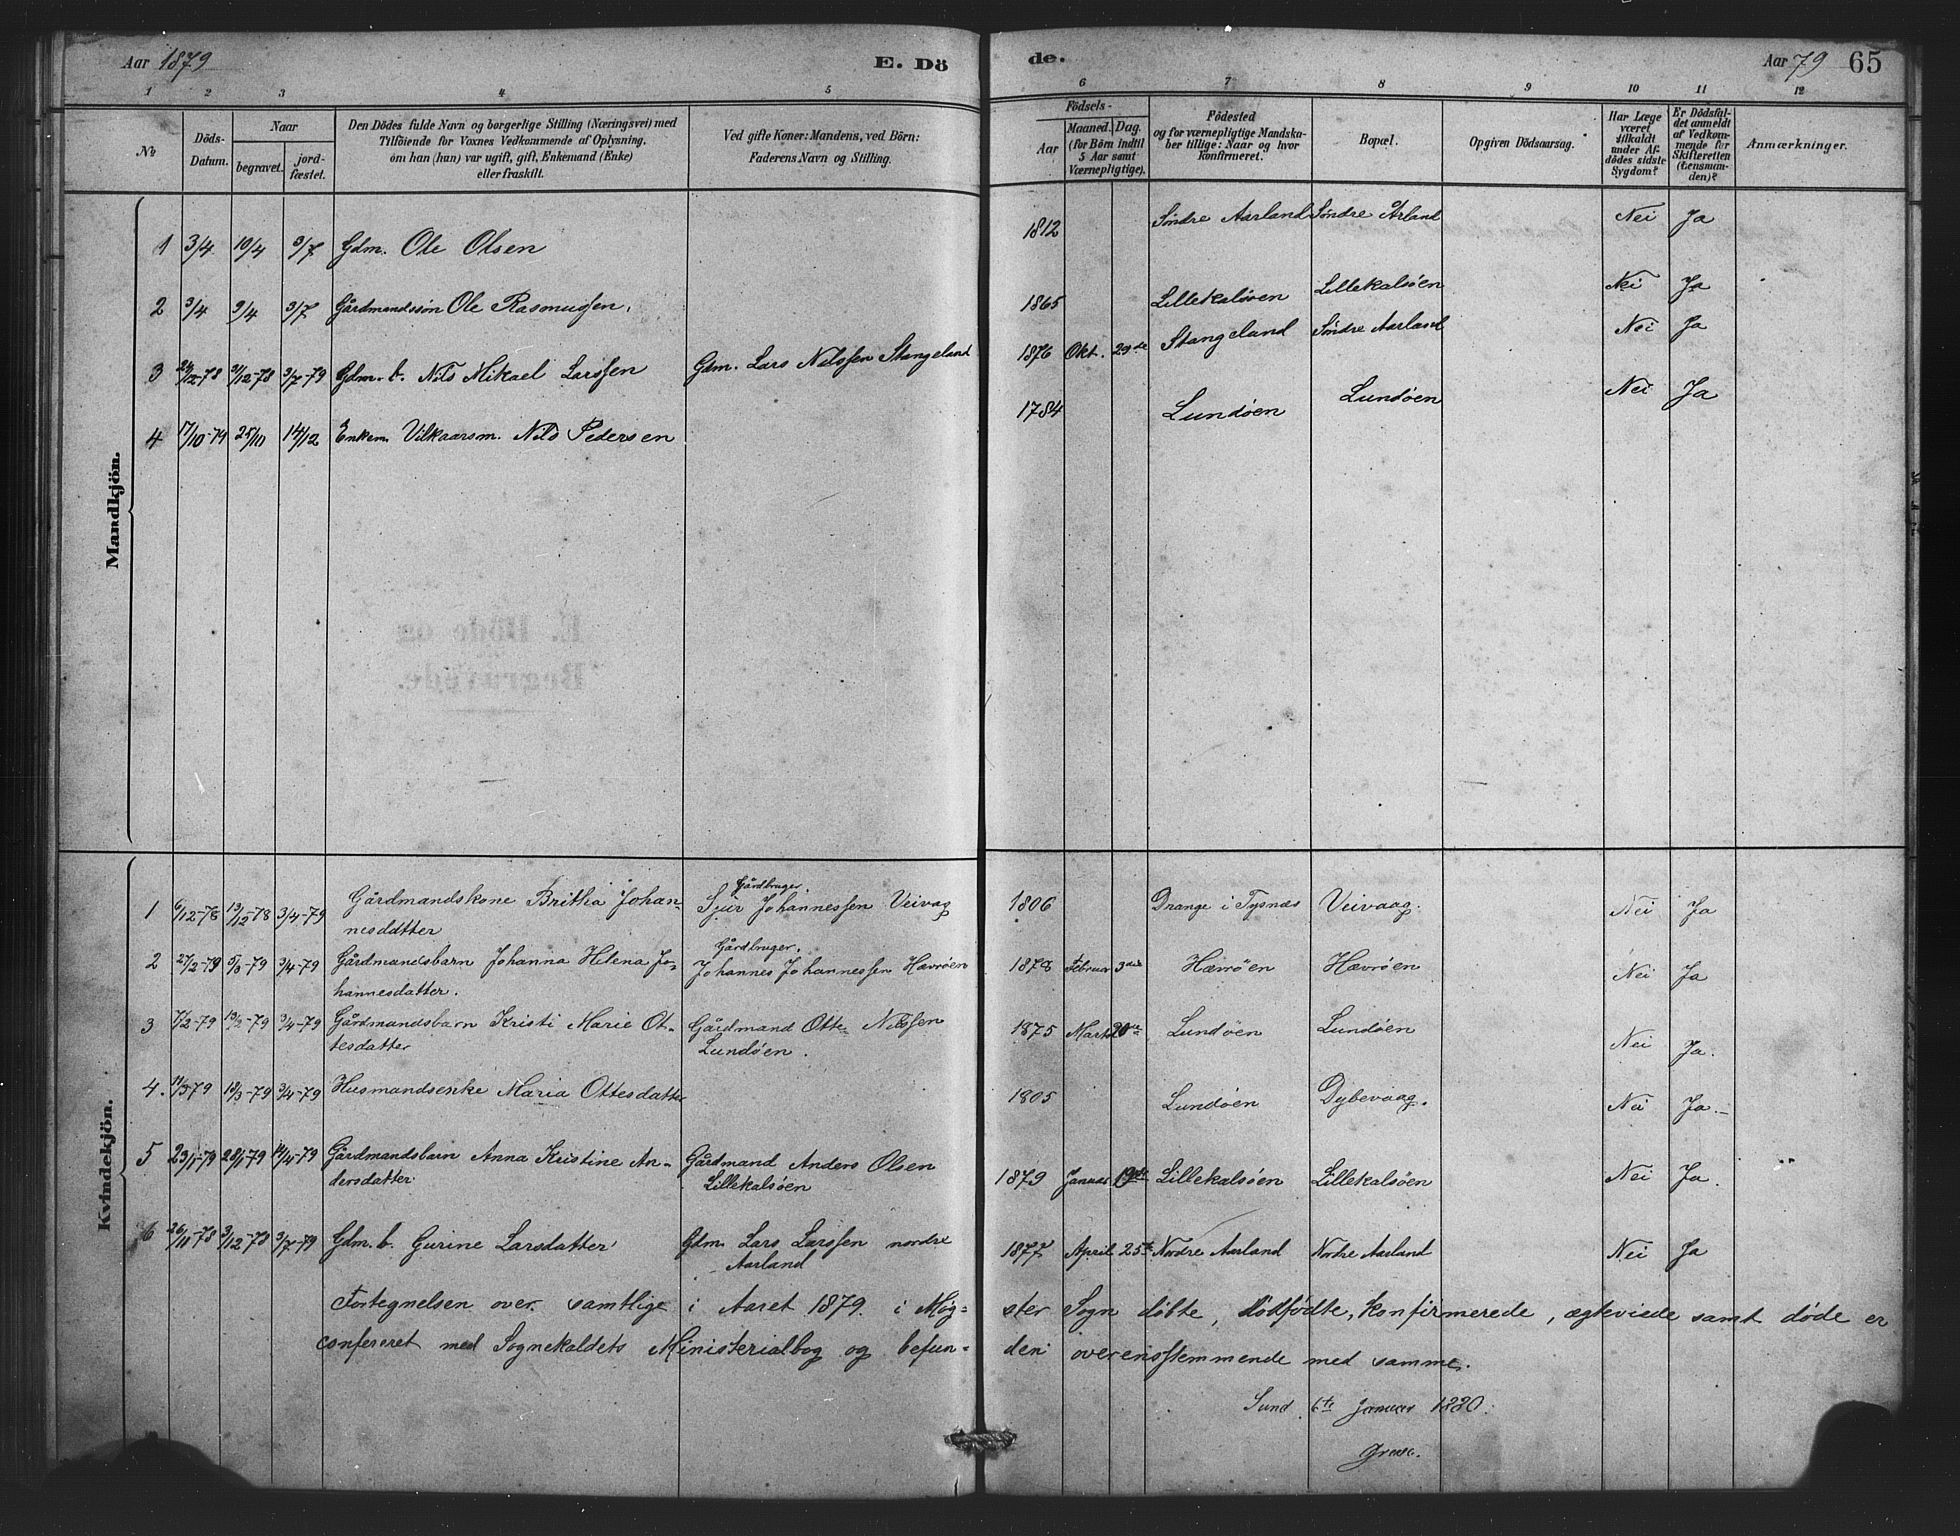 Aar 1879 E. Dö de. Aar 79 65
1 2 3 4 5 6 7 8 9 10 11 12
No
Döds-Datum.
Naar
begravet.
jord-fæstet.
Den Dödes fulde Navn og borgerlige Stilling (Næringsvei) med
Tilföiende for Voxnes Vedkommende af Oplysning,
om han (hun) var ugift, gift, Enkemand (Enke)
eller fraskilt.
Ved gifte Koner: Mandens, ved Börn:
Faderens Navn og Stilling.
Födsels-
Aar
Maaned. Dag.
(for Börn indtil
5 Aar samt
Værnepligtige).
Födested
og for værnepligtige Mandska-
ber tillige: Naar og hvor
konfirmeret.
Bopæl.
Opgiven Dödsaarsag.
Har Læge
været
tilkaldt
under Af-
dödes sidste
Sygdom?
Er Dödsfal-
det anmeldt
af Vedkom-
mende for
Skifteretten
(Lensman-
den)?
Anmærkninger.
Mandkjön.
1 3/4 10/4 3/7 Gdm. Ole Olsen 1812 Søndre Aarland Søndre Årland Nei Ja
2 3/4 9/4 3/7 Gårdmandssøn Ole Rasmussen. 1865 Lillekalsøen Lillekalsøen Nei Ja
3 /12-78 /12-78 3/7-79 Gdm. b. Nils Mikael Larssen Gdm. Lars Nilssen Stangeland 1876 Okt. 29de Stangeland Søndre Aarland Nei Ja
4 17/10-79 25/10 14/12 Enkem. Vilkaarsm. Nils Pedersen 1784 Lundøen Lundøen Nei Ja
Kvindekjön.
1 6/12-78 13/12-78 3/4-79 Gårdmandskone Britha Johan-
nesdatter
Gårdbruger.
Sjur Johannessen Veivag 1806 Drange i Tysnæs Veivaag. Nei Ja
2 27/2-79 5/3-79 3/4-79 Gårdmandsbarn Johanna Helena Jo-
hannesdatter.
Gårdbruger.
Johannes Johannessen Hævrøen 1878 Februar 3die Hævrøen Hævrøen Nei Ja
3 7/2-79 13/2-79 3/4-79 Gårdmandsbarn Kristi Marie Ot-
tesdatter
Gårdmand Otte Nilssen
Lundøen. 1875 Marts 20de Lundøen Lundøen Nei Ja.
4. 11/3 79 18/3-79 3/4-79 Husmandsenke Maria Ottesdatter 1805 Lundøen Dybevaag. Nei Ja.-
5 23/1-79 28/1-79 14/4-79 Gårdmandsbarn Anna Kristine An-
dersdatter
Gårdmand Anders Olsen
Lillekalsøen 1879 Januar 19de Lillekalsøen Lillekalsøen Nei Ja.
6 26/11-78 3/12-78 3/7-79 Gdm. b. Gurine Larsdatter Gdm. Lars Larssen nordre
Aarland 1877 April 25de Nordre Aarland Nordre Aarland Nei Ja
Fortegnelsen over samtlige i Aaret 1879. i Møg-ster Sogn døbte, dødfødte, konfirmerede, ægteviede samt døde er
confereret med Sognekaldets Ministerialbog og befun-den overensstemmende med samme.
Sund, 6te Januar 1880.